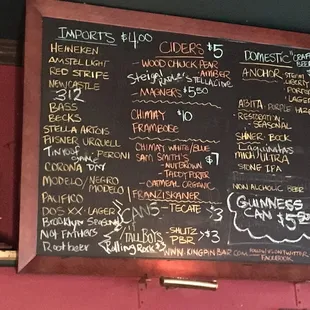 IMPORTS $4.00
HEINEKEN
AMSTEL LIGHT
RED STRIPE
NEWCASTLE
312
BASS
BECKS
STELLA ARTOIS
PILSNER URQUELL
PERONI
CORONA
MODELO/NEGRO
MODELO
PACIFICO
DOS XX-LAGER
Brooklyn Seasonal
Not Fathers
Root beer
CIDERS $5
- WOOD CHUCK PEAR
- AMBER
Steigl Radler
STELLA CIDRE
- MAGNERS $5.50
CHIMAY $10
FRAMBOISE
CHIMAY WHITE/BLUE
SAM SMITH'S $7
- NUT BROWN
- TADDY PORTER
- OATMEAL ORGANIC
FRANZISKANER
CANS - TECATE $3
TALL BOYS - SHLITZ $3
PBR
Rolling Rock $3
WWW.KINGPINBAR.COM
DOMESTIC "CRAFT
ANCHOR - STEAM
LIBERTY
PORTER
LAGER
ABITA PURPLE HAZE
RESTORATION
- SEASONAL
SHINER BOCK
Lagunitas
MICH ULTRA
STONE IPA
NON ALCOHOLIC BEER
GUINNESS
CAN $5.50
FACEBOOK